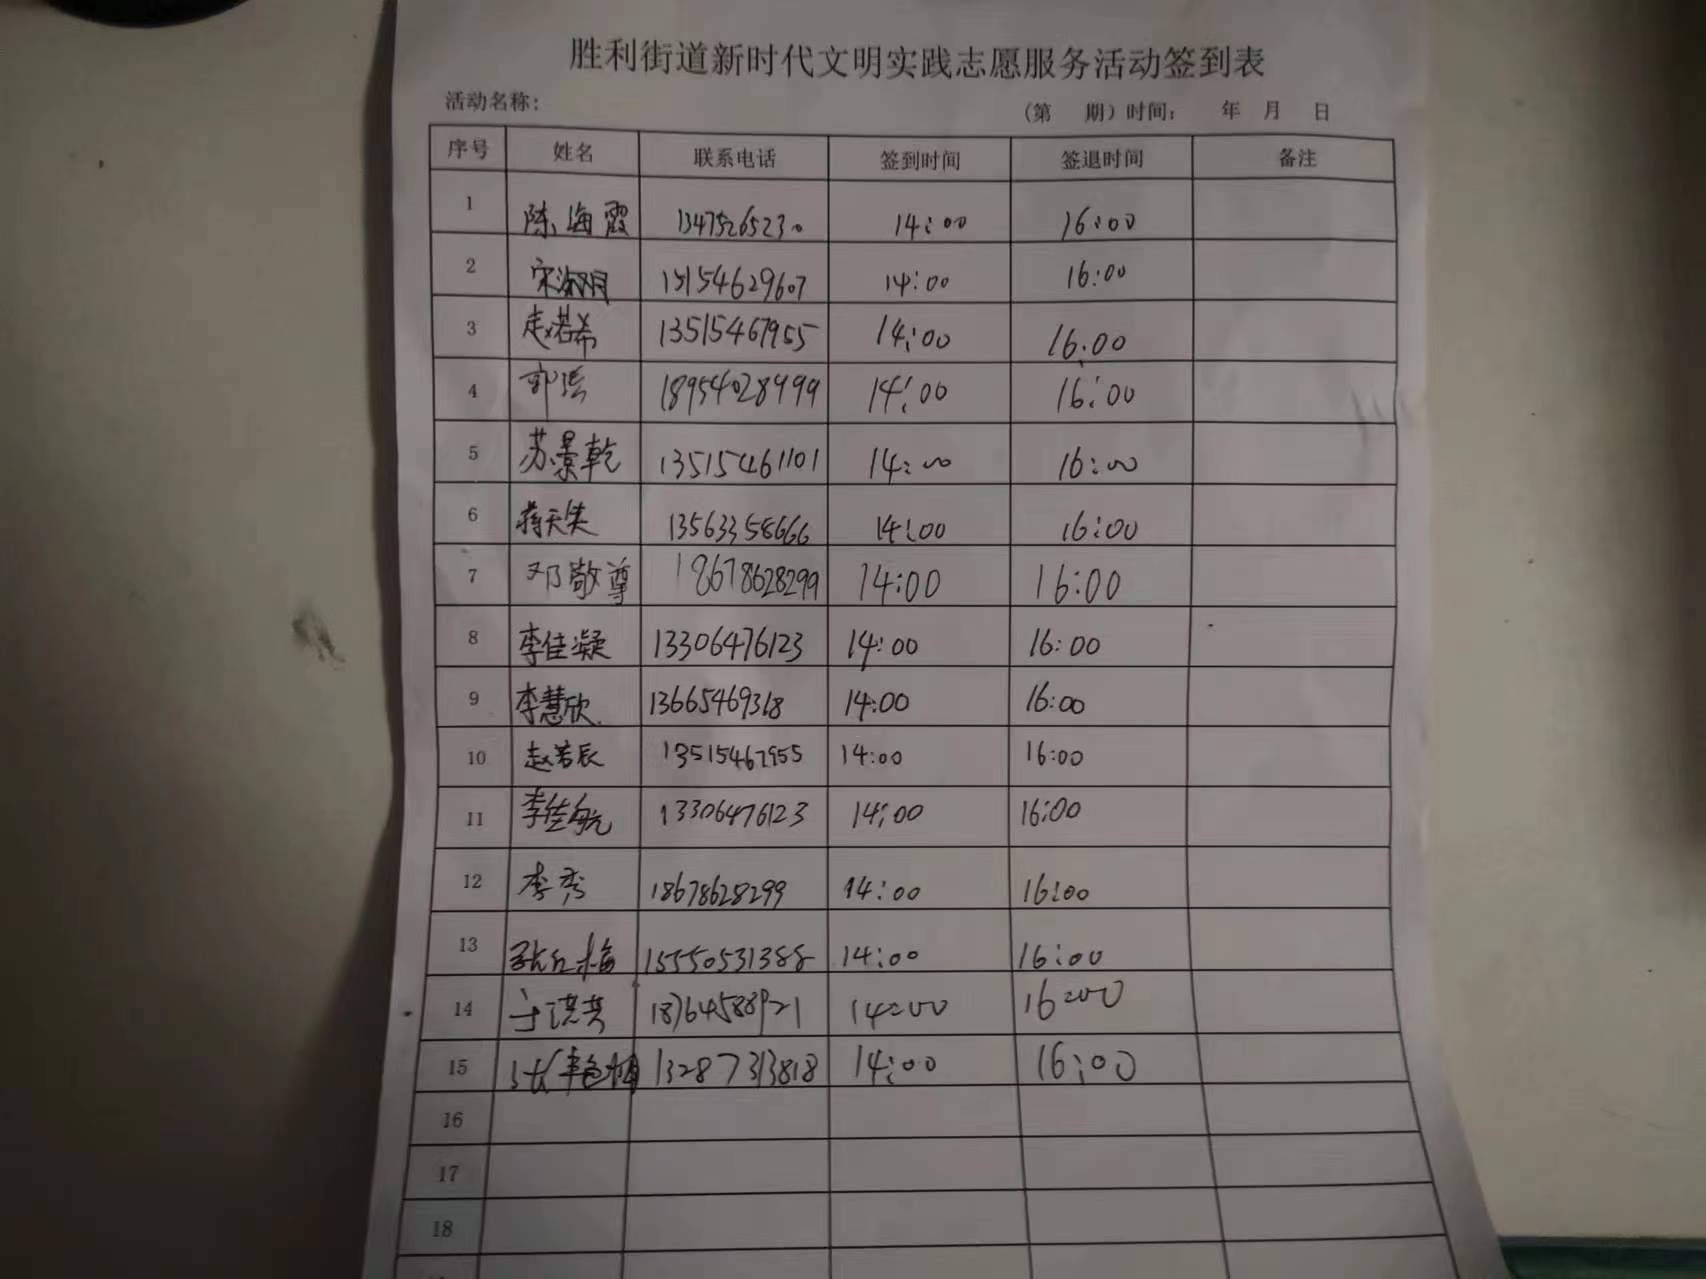 胜利街道新时代文明实践志愿服务活动签到表
活动名称: (第 期) 时间: 年 月 日
序号 姓名 联系电话 签到时间 签退时间 备注
1 陈海霞 13475265230 14:00 16:00
2 15154629607 14:00 16:00
3 赵若希 13515467955 14:00 16:00
4 郭 18954028999 14:00 16:00
5 苏景乾 13515461101 14:00 16:00
6 蒋天 13563358666 14:00 16:00
7 邓敬尊 18678628299 14:00 16:00
8 李佳凝 13306476123 14:00 16:00
9 李慧欣 13665469318 14:00 16:00
10 赵若辰 13515467955 14:00 16:00
11 李佳航 13306476123 14:00 16:00
12 李秀 18678628299 14:00 16:00
13 张红梅 15550531388 14:00 16:00
14 于洪 18764588921 14:00 16:00
15 张艳梅 13287313818 14:00 16:00
16
17
18